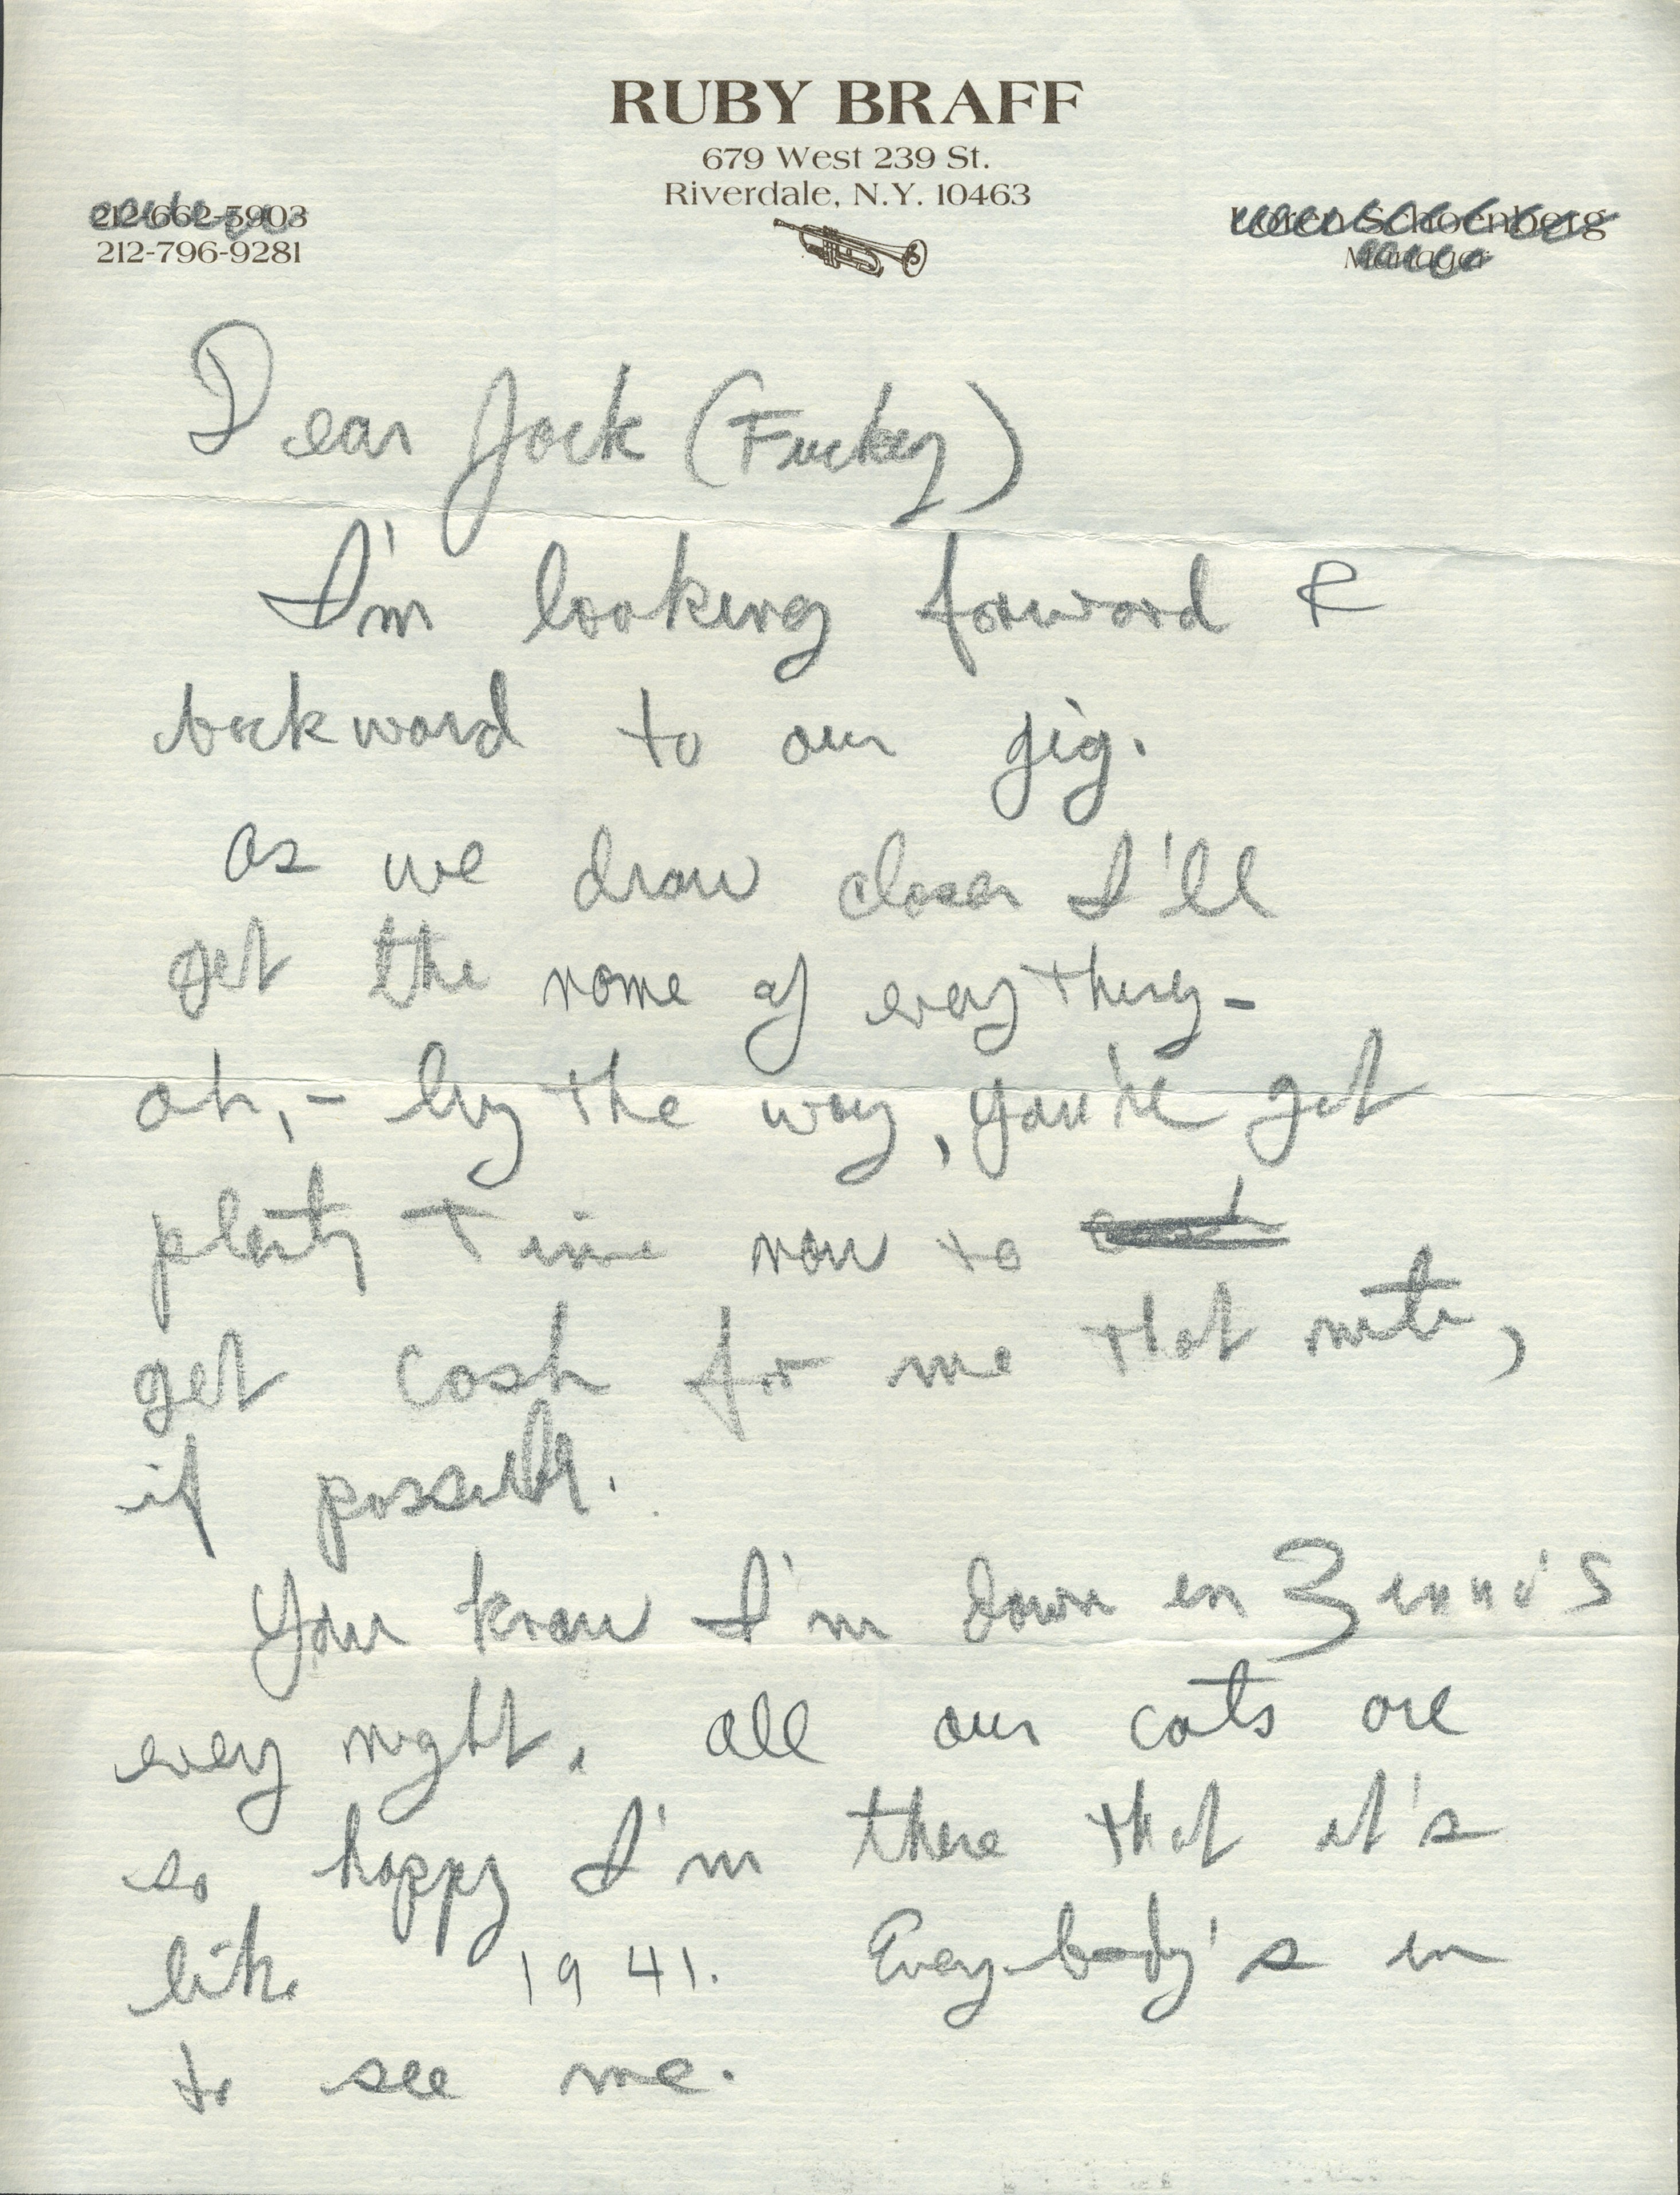 RUBY BRAFF
679 West 239 St.
Riverdale, N.Y. 10463
212-662-5903
212-796-9281
Loren Schoenberg
Manager
Dear Jack (Fuckey)
I'm looking forward &
backward to our gig.
As we draw closer I'll
get the name of everything-
oh, - by the way, you've got
plenty time now to
get cash for me that nite,
if possible.
You know I'm down in Zinno's
every night. All our cats are
so happy I'm there that it's
like 1941. Everybody's in
to see me.